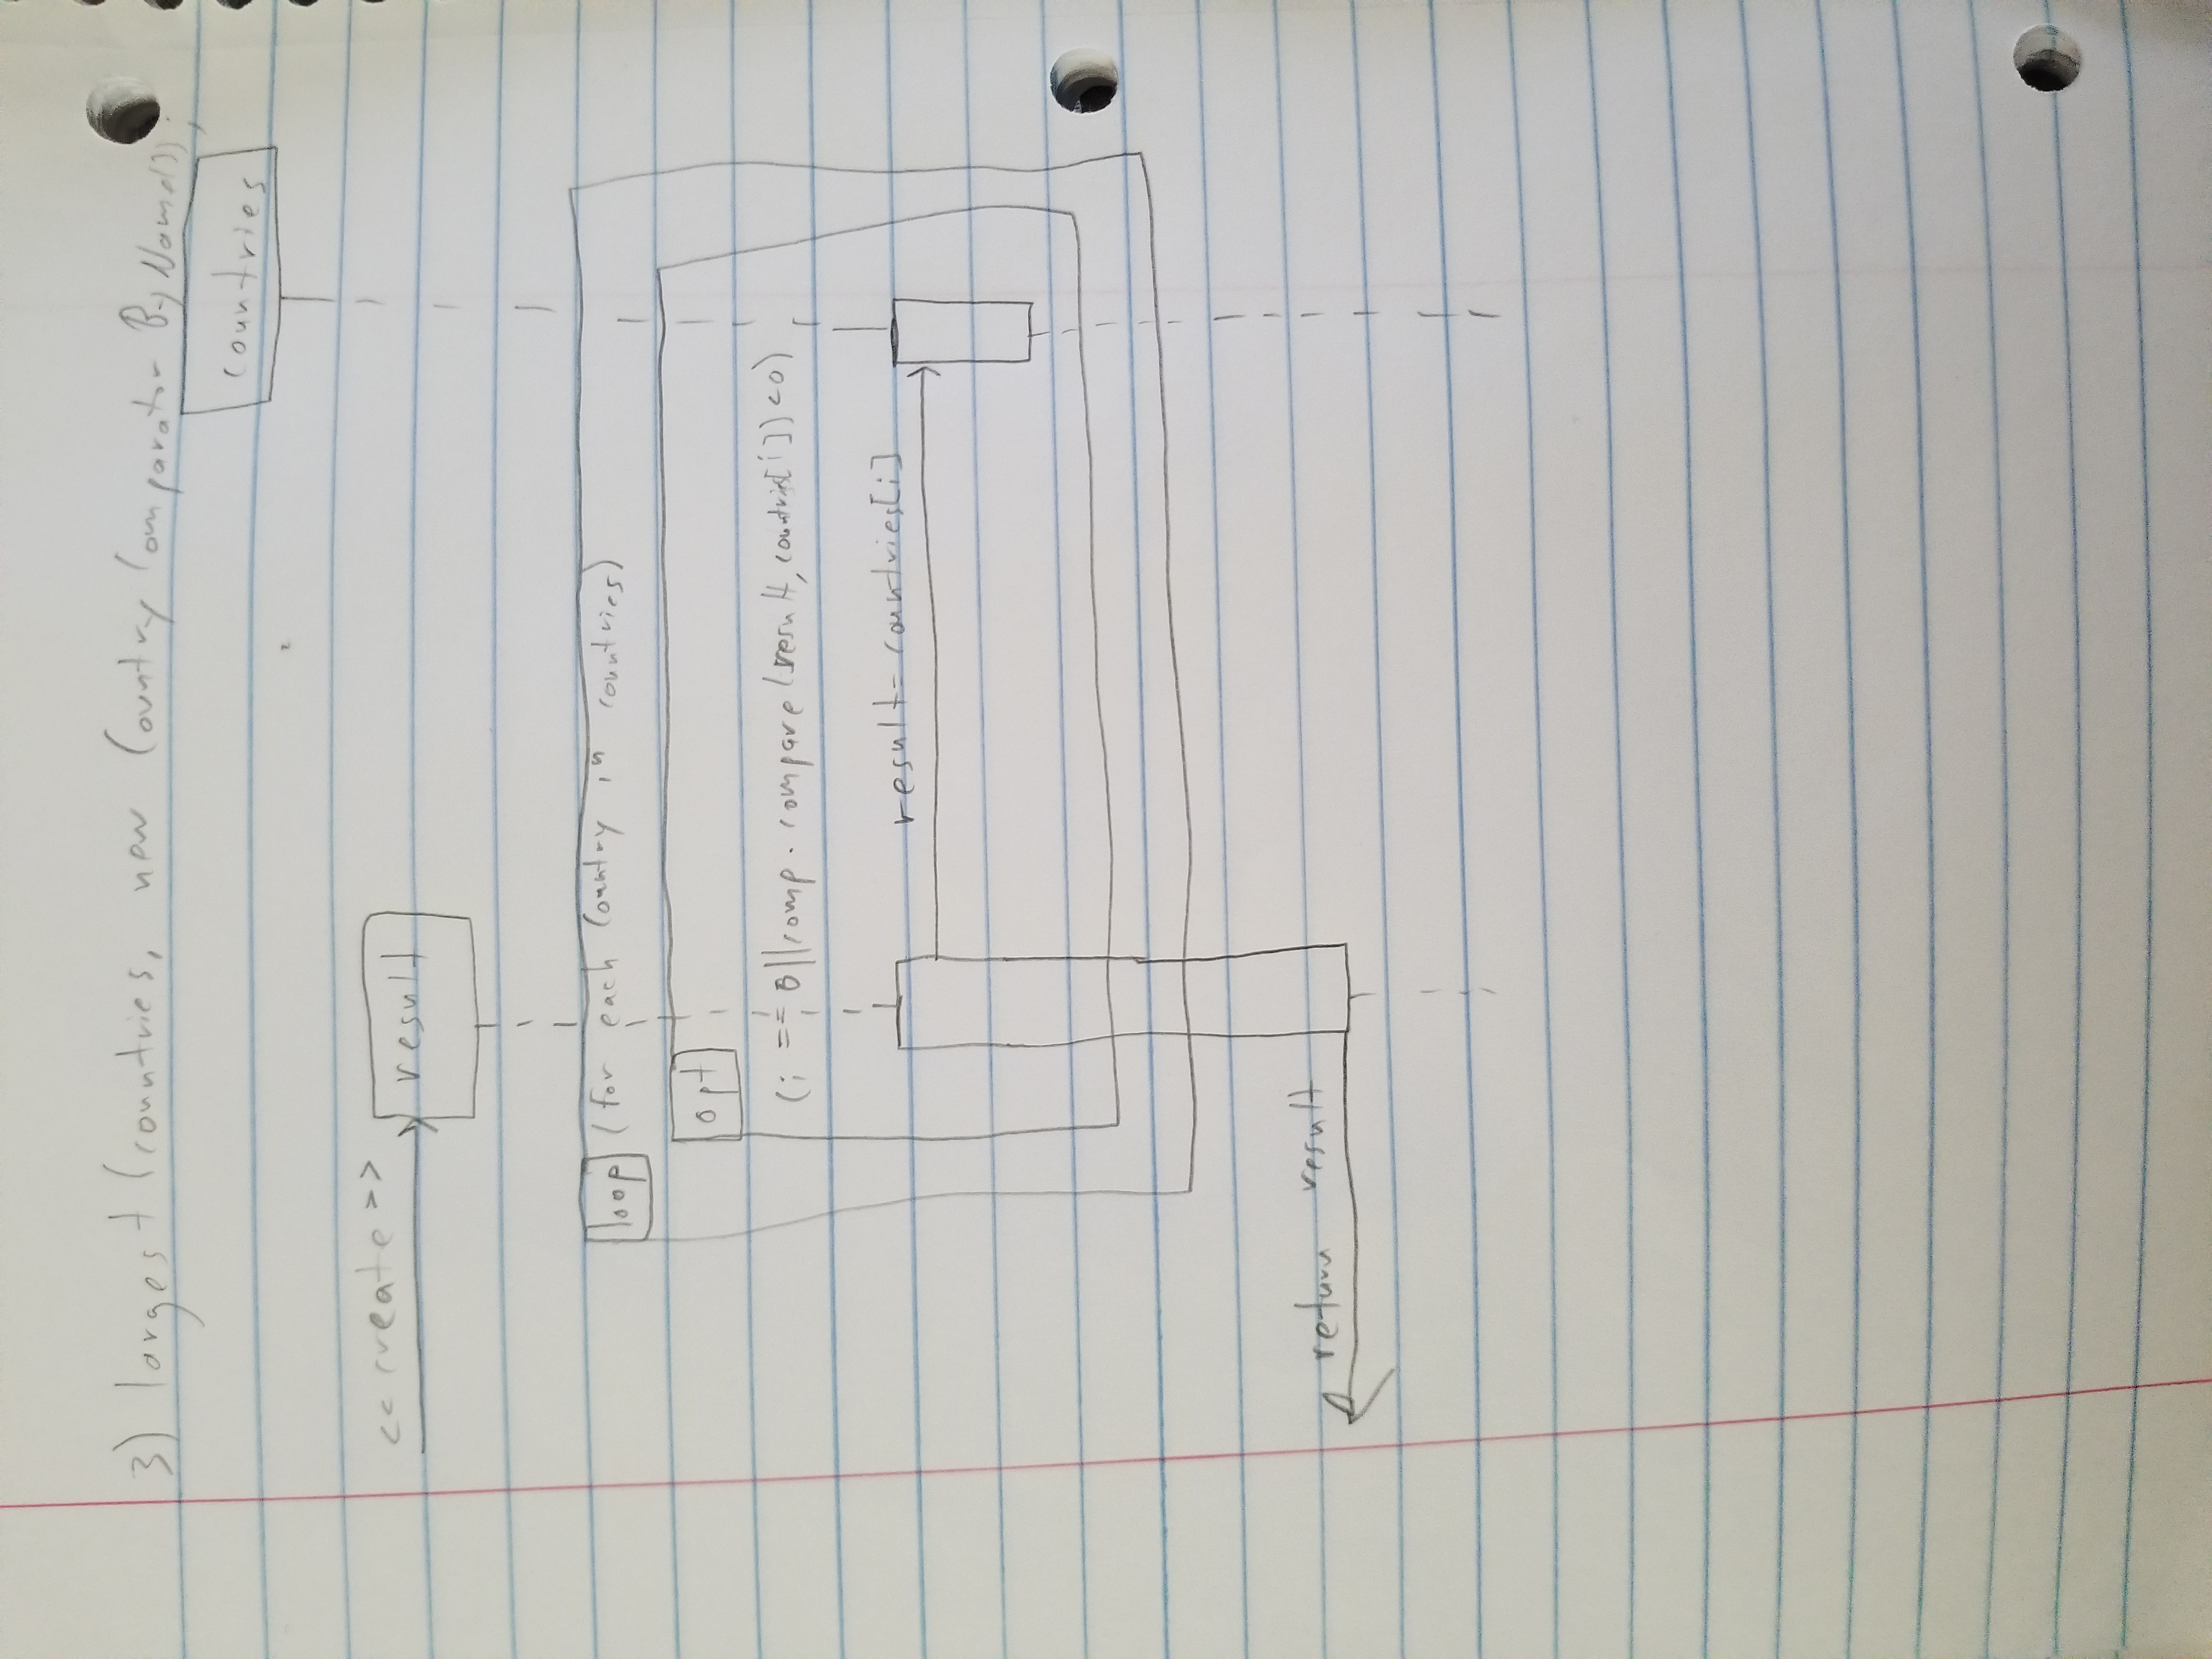 3) largest (countries, new CountryComparatorByName());
countries
<<create>>
result
loop (for each country in countries)
opt
(i == 0 || comp.compare(result, countries[i]) < 0)
result = countries[i]
return result